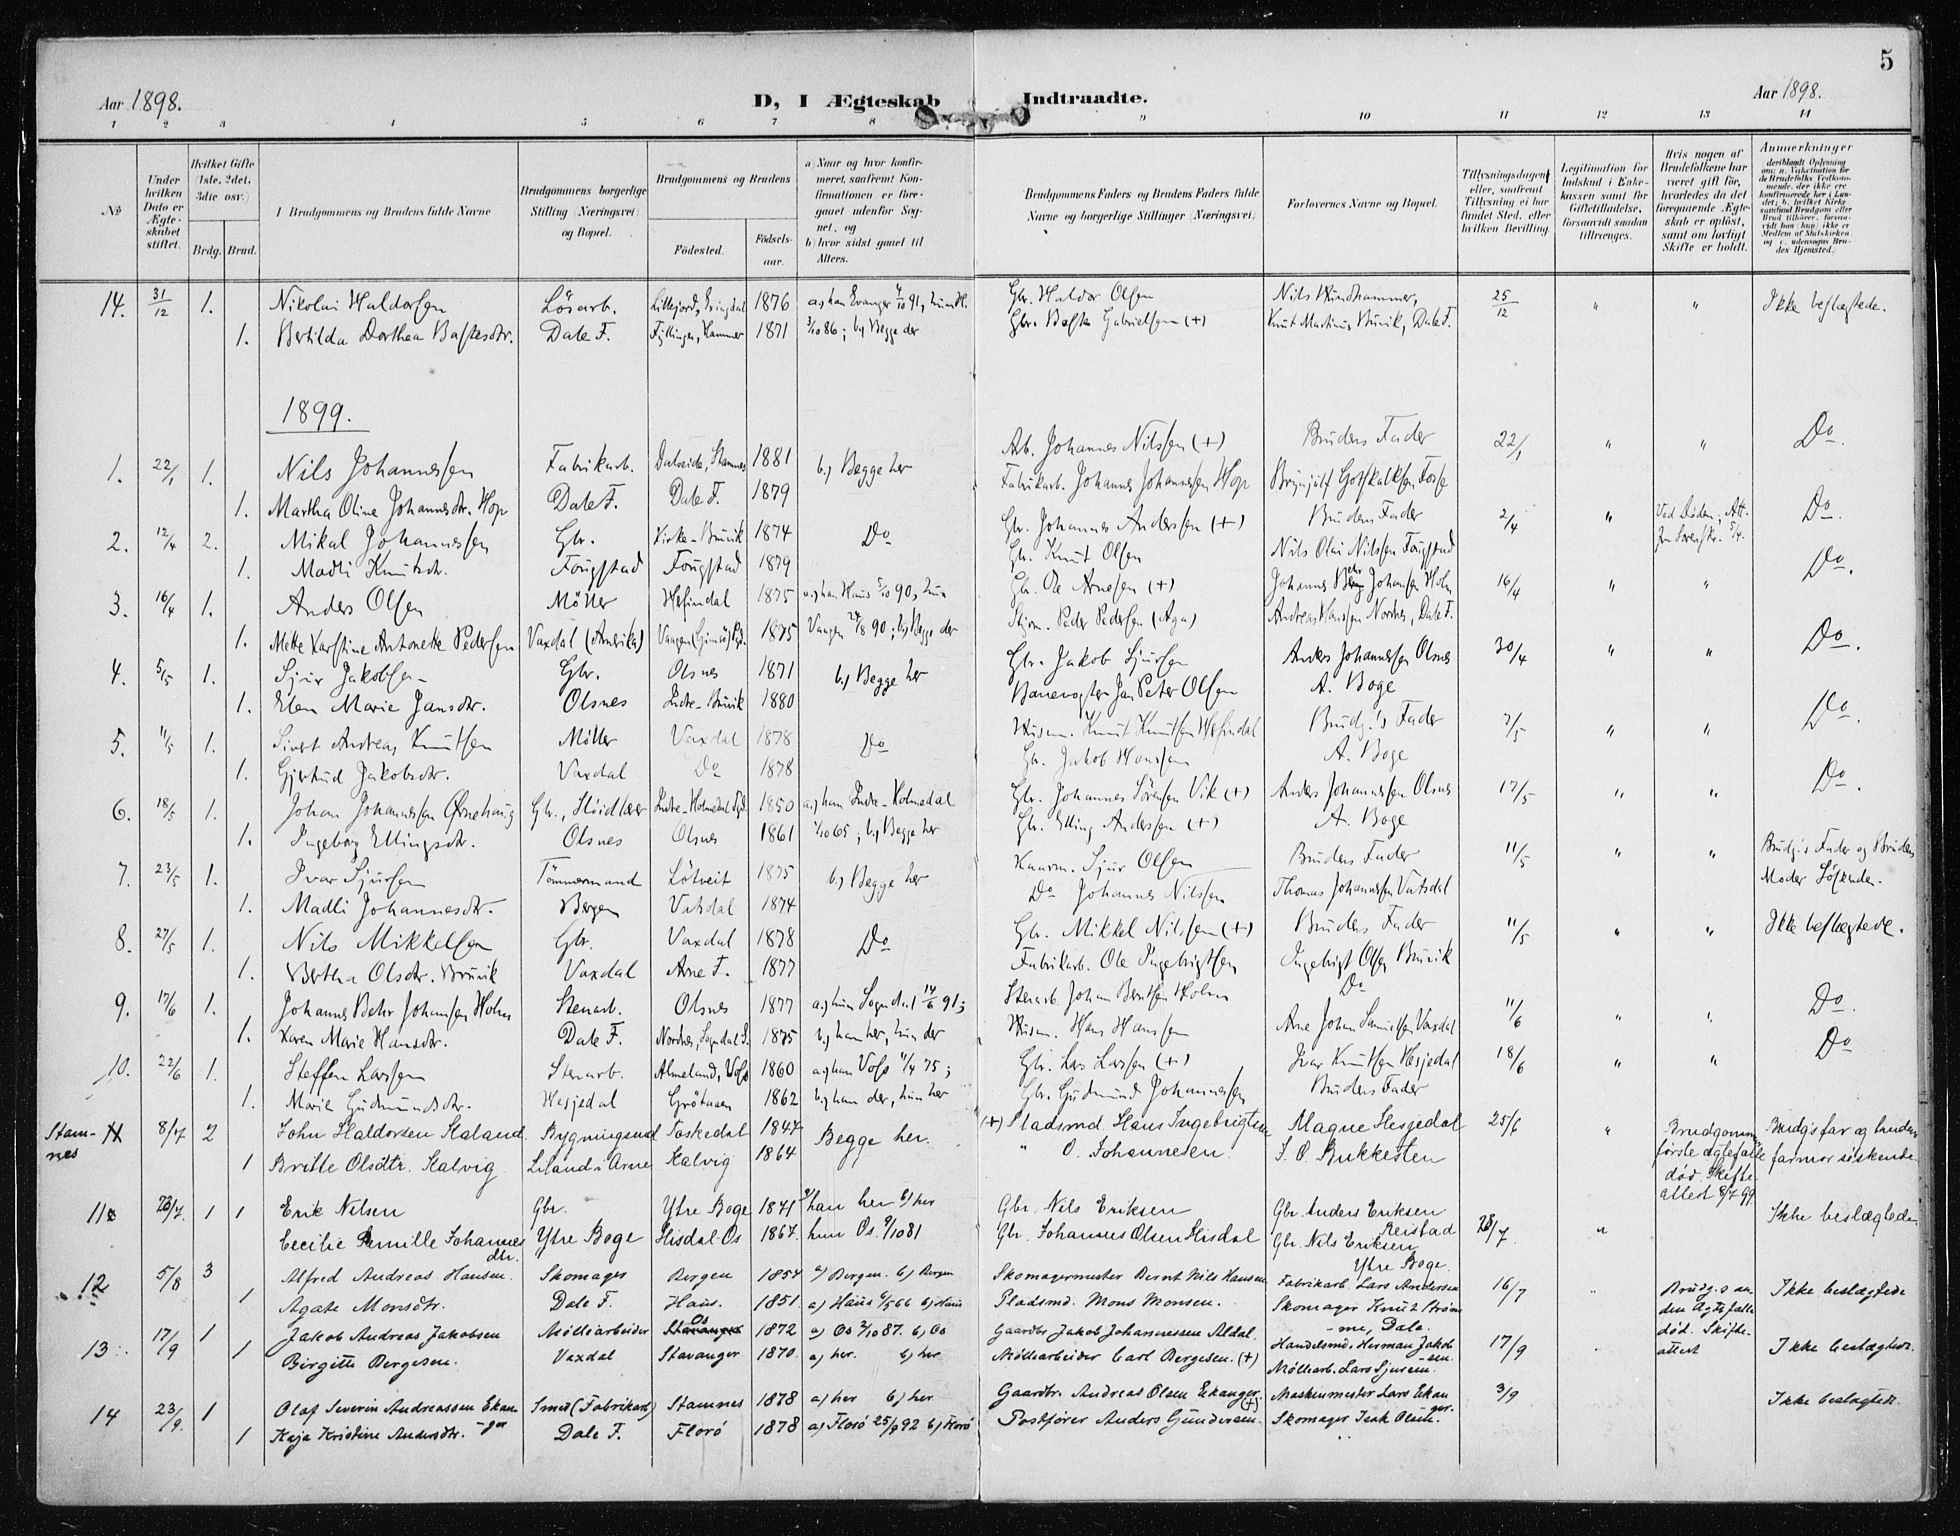 5
Aar 1898. D, I Ægteskab Indtraadte. Aar 1898.
1 2 3 4 5 6 7 8 9 10 11 12 13 14
No
Under hvilken Dato er Ægteskabet stiftet.
Hvilket Gifte (1ste, 2det, 3die osv.)
Brdg. Brud.
1 Brudgommens og Brudens fulde Navne
Brudgommens borgerlige Stilling (Næringsvei) og Bopæl.
Brudgommens og Brudens
Födested. Födselsaar.
a) Naar og hvor konfirmeret, saafremt Konfirmationen er foregaaet udenfor Sognet, og
b) hvor sidst gaaet til Alters.
Brudgommens Faders og Brudens Faders fulde Navne og borgerlige Stillinger (Næringsvei)
Forlovernes Navne og Bopæl.
Tillysningsdagen eller, saafremt Tillysning ei har fundet Sted, efter hvilken Bevilling.
Legitimation for Indskud i Enkekassen samt for Giftetilladelse, forsaavidt saadan tiltrænges.
Hvis nogen af Brudefolkene har været gift før, hvorledes da det foregaaende Ægteskab er opløst, samt om lovligt Skifte er holdt.
Anmerkninger
14. 31/12 1. Nikolai Haldorsen Lösarb. 1876 a.) han Evanger 4/10 91, Gbr. Haldor Olsen Nils 25/12 " " Ikke beslægtede.
1. Bertilda Dorthea Dale F. 1871 3/10 86; b.) Begge der Gbr. Gabrielsen (+) Knut Martinus Bruvik, Dale F.
1899.
1. 22/1 1. Nils Johannessen Fabrikarb. Stamnes 1881 b.) Begge her Arb. Johannes Nilssen (+) Brudens Fader 22/1 " " Do.
1. Martha Oline Johannesdtr. Hop Dale F. Dale F. 1879 Fabrikarb. Johannes Johannessen Hop Brynjulf Gotskalksen Fosse
2. 12/4 2. Mikal Johannessen Gbr. Kirke-Bruvik 1874 Do Gbr. Johannes Anderssen (+) Brudens Fader 2/4 " Ved Döden; Att. 5/4. Do.
1. Madli Knutsdr. Fougstad Fougstad 1879 Gbr. Knut Olsen Nils Olai Nilssen Fougstad
3. 16/4 1. Anders Olsen Möller Hesindal 1875 a.) han Haus 5/10 90, hun Gbr. Ole Arnesen (+) Johannes Behr Johansen Holm 16/4 " " Do.
1. Mette Karstine Antonette Pedersen Vaxdal (Amerika) Vangen 1875 Vangen 24/8 90; b.) Begge der Styrm. Peder Pedersen (Aga) Andreas Hanssen Nordnes, Dale F.
4. 5/5 1. Sjur Jakobsen Gbr. Olsnes 1871 b.) Begge her Gbr. Jakob Sjursen Anders Johannessen Olsnes 30/4 " " Do.
1. Elen Marie Jansdtr. Olsnes Indre-Bruvik 1880 Banevogter Jan Peter Olsen A. Boge
5. 11/5 1. Sivert Andreas Knutsen Möller Vaxdal 1878 Do Husm. Knut Knutsen Hesindal Brudg.'s Fader 7/5 " " Do.
1. Gjertrud Jakobsdtr. Vaxdal Do 1878 Gbr. Jakob Hanssen A. Boge
6. 18/5 1. Johan Johannessen Ørnehaug Gbr., Indre-Holmedal 1850 a.) han Indre-Holmedal Gbr. Johannes Sörensen Vik (+) Anders Johannessen Olsnes 17/5 " " Do.
1. Ingeborg Ellingsdtr. Olsnes Olsnes 1861 1/10 65; b.) Begge her Gbr. Elling Anderssen (+) A. Boge
7. 23/5 1. Ivar Sjursen Tömmermand Lötveit 1875 b.) Begge her Kaarm. Sjur Olsen Brudens Fader 11/5 " " Brudg.'s Fader og Brudens Moder Söskende.
1. Madli Johannesdtr. Bergen Vatsdal 1874 Do Johannes Nilssen Thomas Johannessen Vatsdal
8. 27/5 1. Nils Mikkelsen Gbr. Vaxdal 1878 Do Gbr. Mikkel Nilssen (+) Brudens Fader 11/5 " " Ikke beslægtede.
1. Bertha Olsdtr. Bruvik Vaxdal Arne F. 1877 Fabrikarb. Ole Ingebrigtsen Ingebrigt Olsen Bruvik
9. 17/6 1. Johannes Behr Johansen Holm Stenarb. Olsnes 1877 a.) hun Sogndal 14/6 91; Stenarb. Johan Berntsen Holm Do 11/6 " " Do.
1. Karen Marie Hansdtr. Dale F. Nordnes, Sogndal S. 1875 b.) han her, hun der Husm. Hans Hanssen Arne Johan Samuelsen Vaxdal
10. 22/6 1. Steffen Larssen Stenarb. Almeland, Voss 1860 a.) han Voss 11/4 75; Gbr. Lars Larssen (+) Ivar Knutsen Hesjedal 18/6 " " Do
1. Marie Gudmundsdtr. Hesjedal Grötusen 1862 b.) han der, hun her Gbr. Gudmund Johannessen Brudens Fader
Stamnes 8/7 2 John Haldorsen Kaland Bygningsmd Toskedal 1847 Begge her. (+) Pladsmd. Hans Ingebrigtsen Magne Hesjedal 25/6 " Brudgommens förste ægtefælle död. Skifteattest 8/7 99 Brudg's far og brudens farmor söskende
1 Britte Olsdtr. Kalvig Liland i Arne Kalvig 1864 " O. Johannesen. S. O. Bukkesten
11 23/7. 1 1 Erik Nilsen Gbr. Ytre Boge 1841 a) han her b) her Gbr. Nils Eriksen Gbr. Anders Eriksen Reistad 23/7. " Ikke beslægtede
Cecilie Pernille Johannesdtr. Ytre Boge Hisdal Os 1867. hun Os. 9/10 81 Gbr. Johannes Olsen Hisdal Gbr. Nils Eriksen Ytre Boge.
12 5/8 3 Alfred Andreas Hansen. Skomager Bergen 1854 a) Bergen. b) Bergen Skomagermester Bernt Nils Hansen Fabrikarb. Lars Andersen 16/7 " Brudg.s anden Ægtefælle död. Skifteattest Ikke beslægtede
1 Agate Monsdtr. Dale F. Haus. 1851. a) Haus 4/5 66 b) Haus Pladsmd. Mons Monsen. Skomager Knut Strömme, Dale.
13 17/9 1 Jakob Andreas Jakobsen Møllearbeider Os 1872 a) Os 2/10 87. b) Os Gaardbr. Jakob Johannessen Aldal. Handelsmd. Herman Jakobsen 17/9 " Ikke beslægtede.
1 Birgitte Bergesen. Vaxdal Stavanger 1870. a) her. b) her Møllearbeider Carl Bergesen. (+) Møllearb. Lars Sjursen
14 23/9. 1 Olaf Severin Andreassen Ekanger Smed (Fabrikarb.) Stamnes 1878 a) her b) her Gaardbr. Andreas Olsen Ekanger (+) Maskinmester Lars Ekanger. 3/9 Ikke beslægtede.
1 Kaja Kristine Andersdtr. Dale F. Florö 1878 a) Florö 25/9 92 b) Florö Postförer Anders Gundersen. Skomager Isak Olsen.